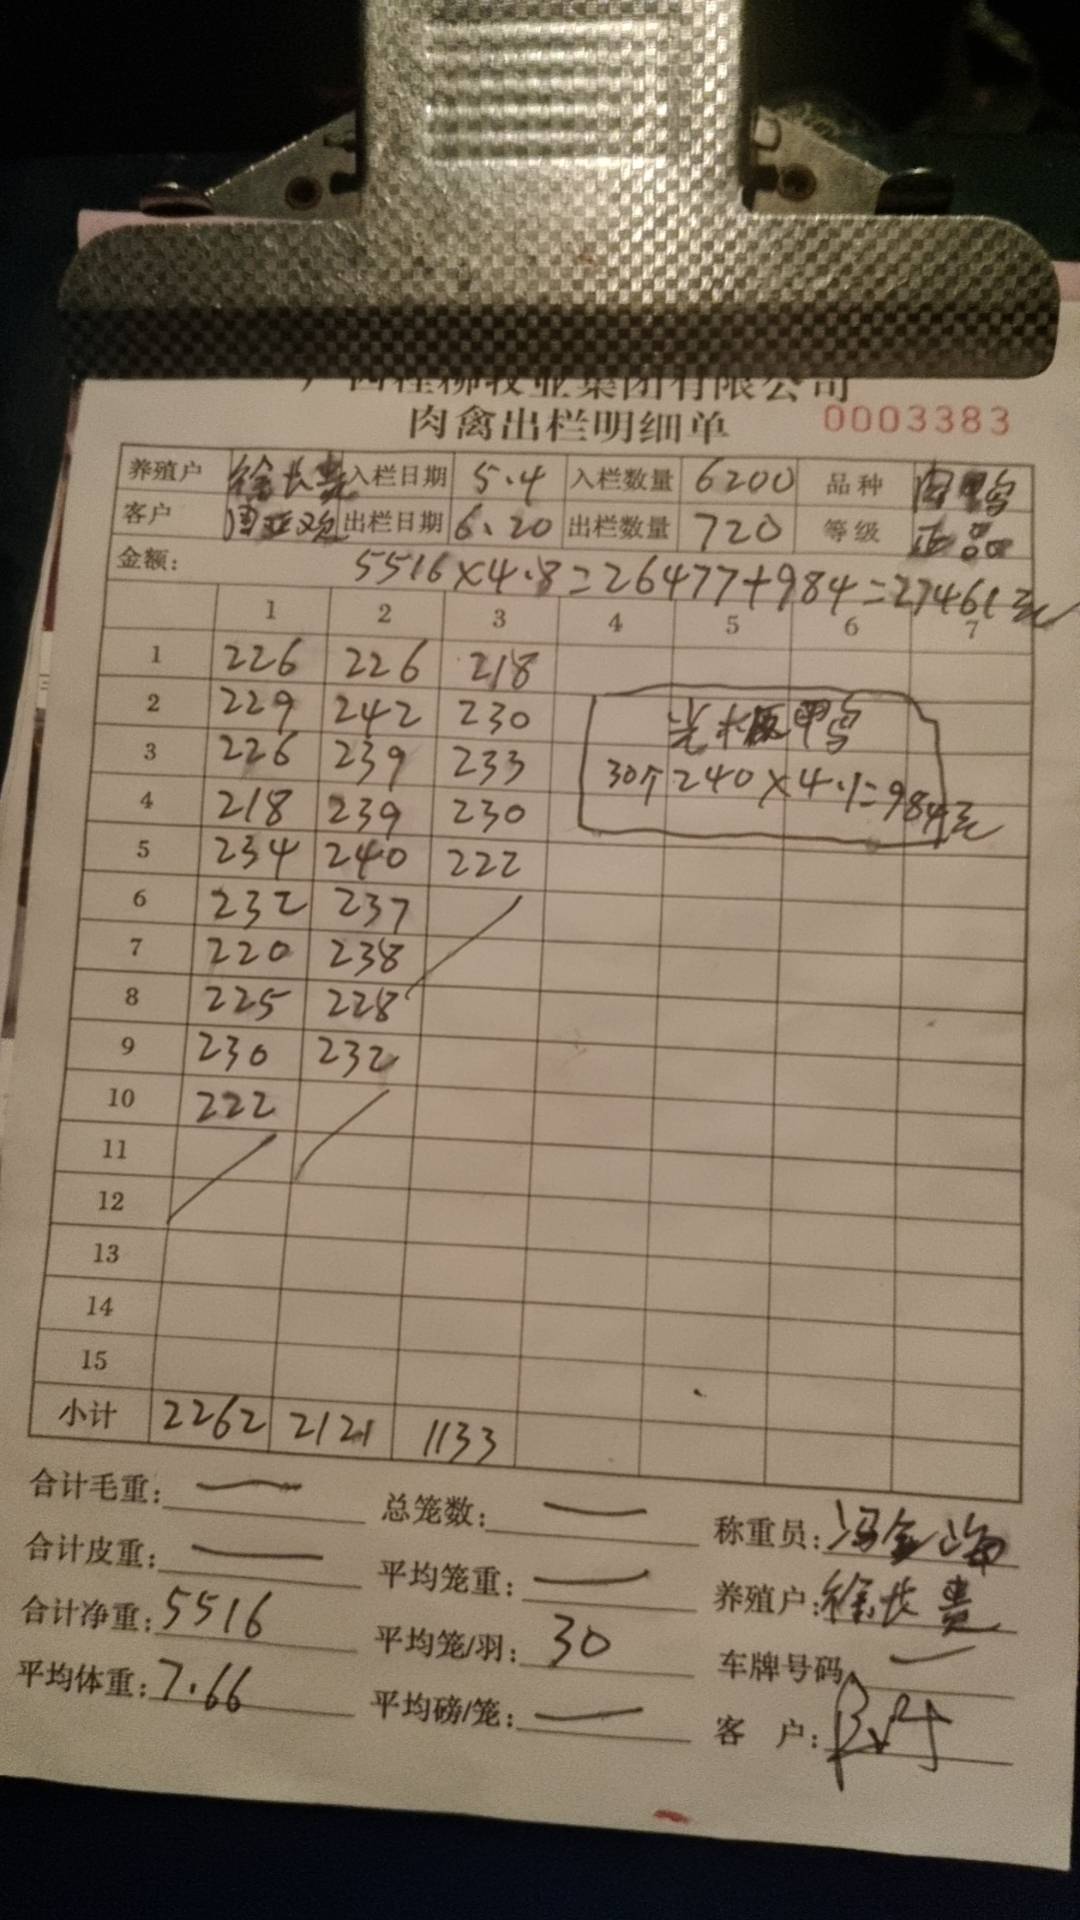 广西桂柳牧业集团有限公司
肉禽出栏明细单 0003383
养殖户 徐长贵 入栏日期 5.4 入栏数量 6200 品种 肉鸭
客户 出栏日期 6.20 出栏数量 720 等级 正品
金额: 5516×4.8=26477+984=27461元
1 2 3 4 5 6 7
1 226 226 218
2 229 242 230
3 226 239 233
4 218 239 230
5 234 240 222
6 232 237
7 220 238
8 225 228
9 230 232
10 222
11
12
13
14
15
鸭
30个 240×4.1=984元
小计 2262 2121 1133
合计毛重: — 总笼数: — 称重员: 冯金海
合计皮重: — 平均笼重: — 养殖户: 徐长贵
合计净重: 5516 平均笼/羽: 30 车牌号码 —
平均体重: 7.66 平均磅/笼: — 客 户: